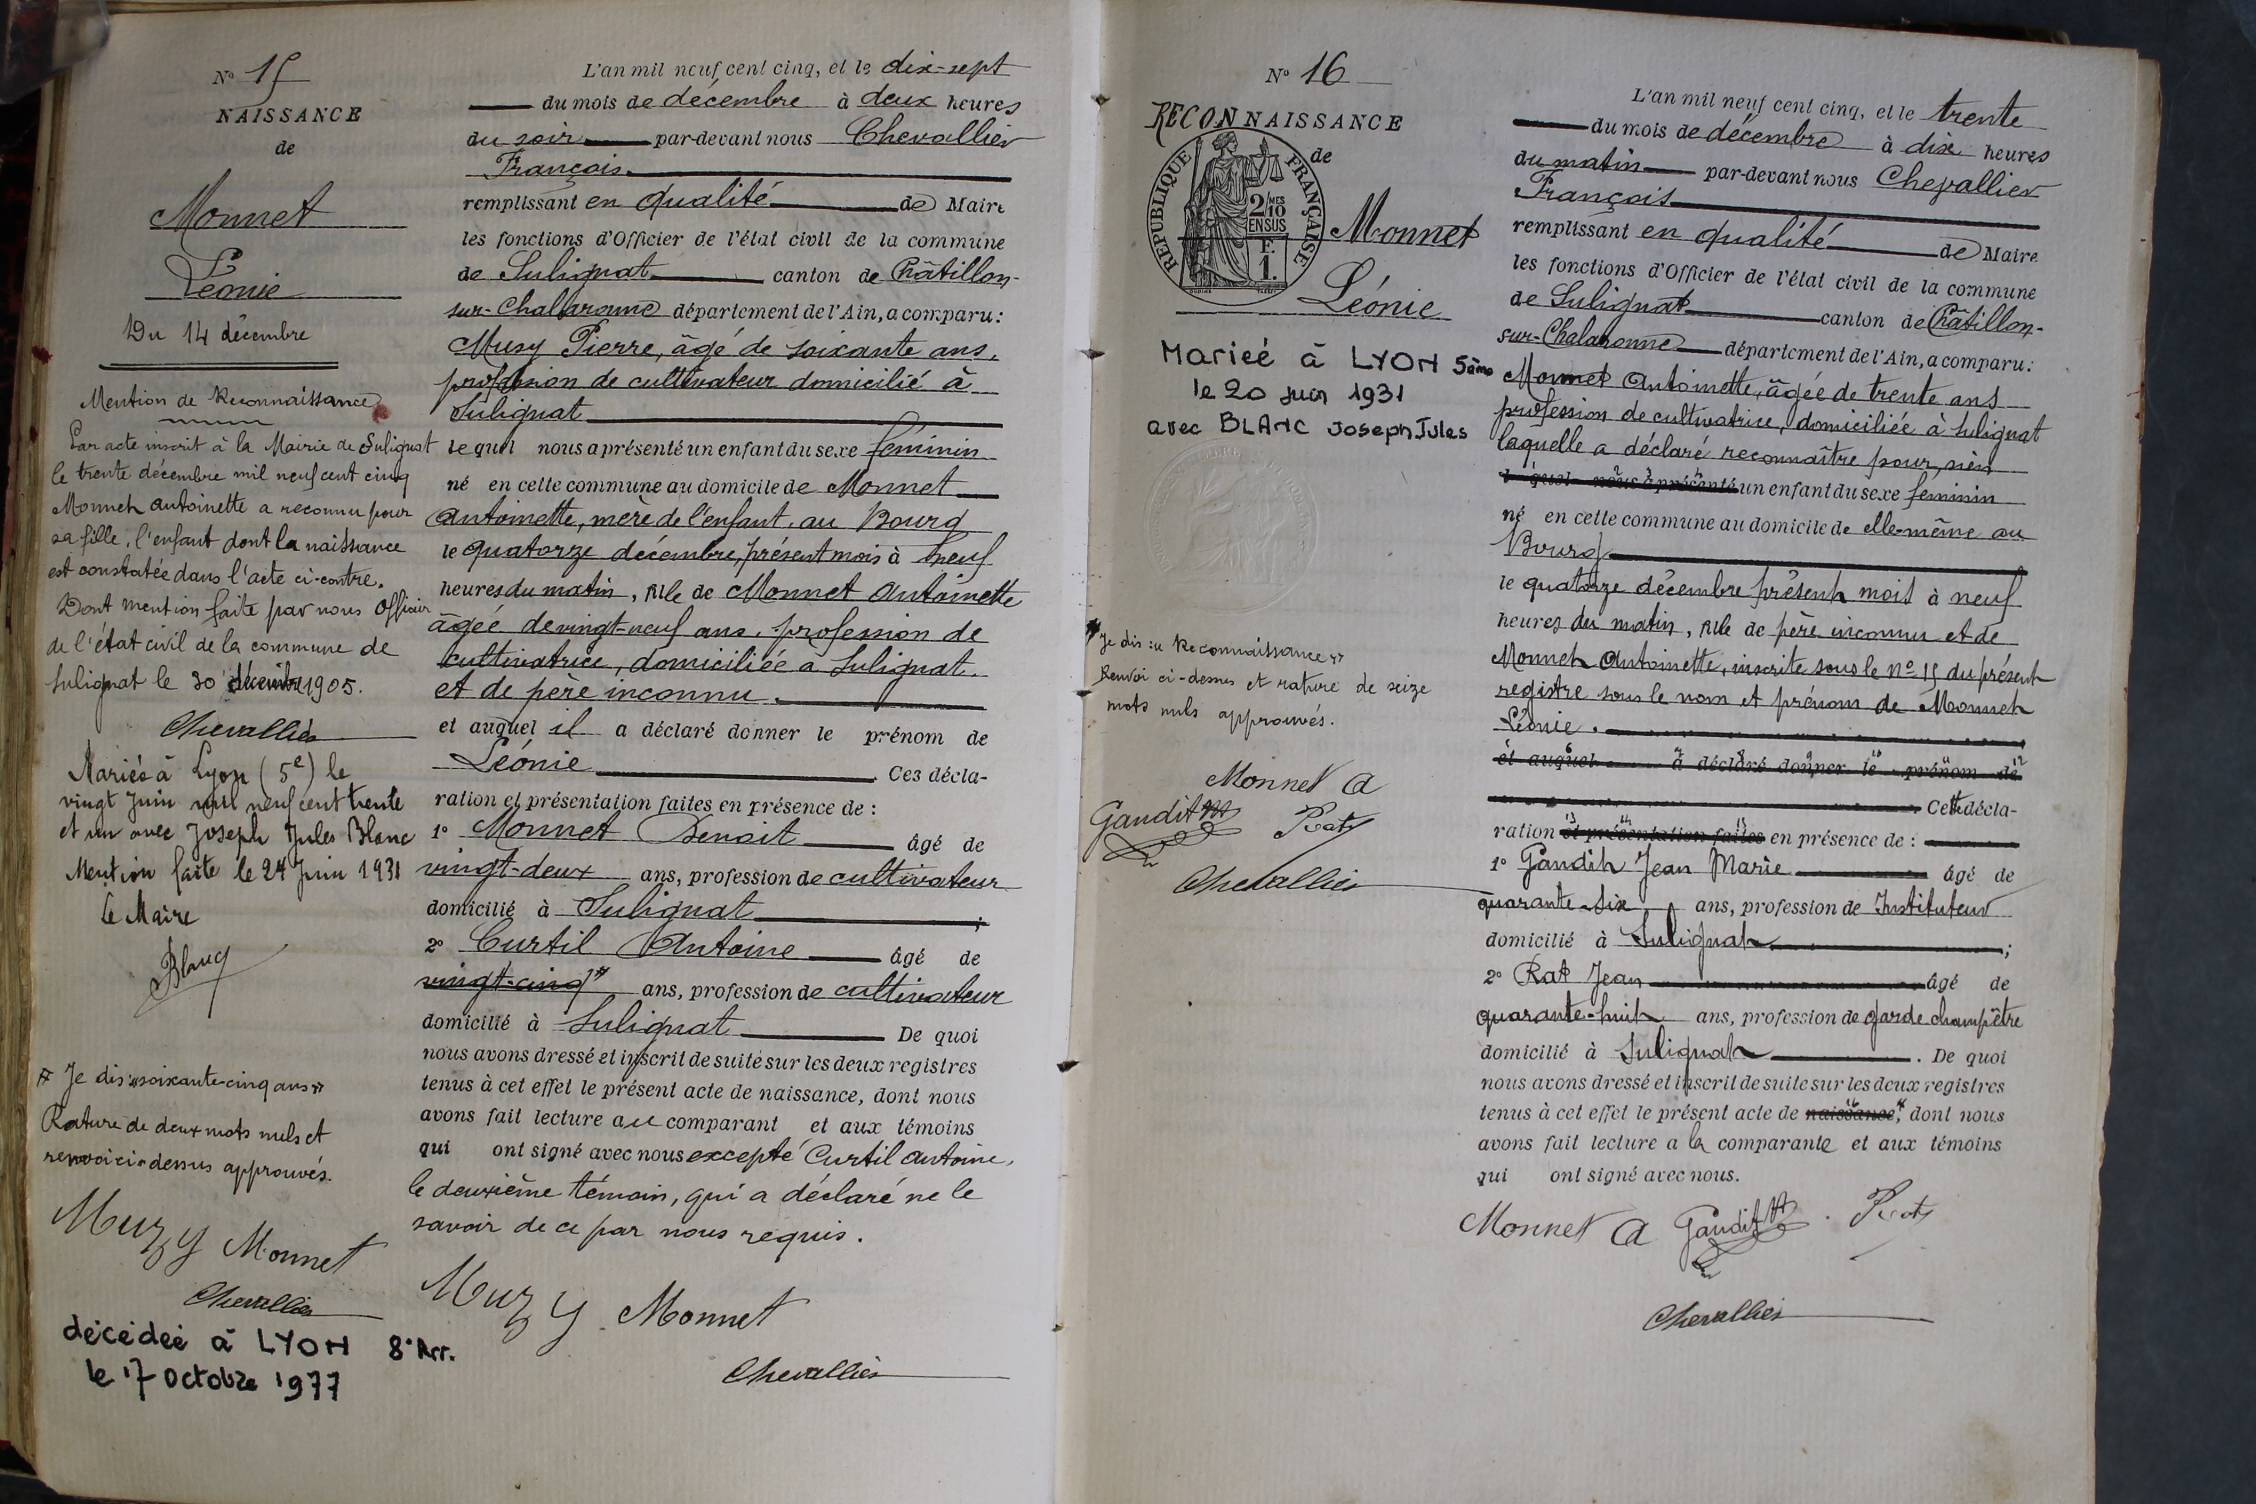 N° 15
NAISSANCE
de
Monnet
Léonie
Du 14 décembre
Mention de Reconnaissance
Par acte inscrit à la Mairie de Sulignat
le trente décembre mil neuf cent cinq
Monnet Antoinette a reconnu pour
sa fille, l'enfant dont la naissance
est constatée dans l'acte ci-contre.
Dont mention faite par nous Officier
de l'état civil de la commune de
Sulignat le 30 décembre 1905.
Chevallier
Mariés à Lyon (5e) le
vingt Juin mil neuf cent trente
et un avec Joseph Jules Blanc
Mention faite le 24 Juin 1931
Le Maire
Je dis "soixante-cinq ans"
Rature de deux mots nuls et
renvoi ci-dessus approuvés.
Muzy Monnet
Chevallier
décédée à LYON 8° Arr.
le 17 octobre 1977
L'an mil neuf cent cinq, et le dix-sept
du mois de décembre à deux heures
du soir par-devant nous Chevallier
François
remplissant en qualité de Maire
les fonctions d'Officier de l'état civil de la commune
de Sulignat canton de Châtillon-
sur-Chalaronne département de l'Ain, a comparu:
Muzy Pierre, âgé de soixante ans,
profession de cultivateur domicilié à
Sulignat
lequel nous a présenté un enfant du sexe féminin
né en cette commune au domicile de Monnet
Antoinette, mère de l'enfant, au Bourg
le quatorze décembre, présent mois à neuf
heures du matin, fille de Monnet Antoinette
âgée de vingt-neuf ans, profession de
cultivatrice, domiciliée à Sulignat.
et de père inconnu.
et auquel il a déclaré donner le prénom de
Léonie Ces décla-
ration et présentation faites en présence de :
1° Monnet Benoit âgé de
vingt-deux ans, profession de cultivateur
domicilié à Sulignat ;
2° Curtil Antoine âgé de
vingt-cinq ans, profession de cultivateur
domicilié à Sulignat De quoi
nous avons dressé et inscrit de suite sur les deux registres
tenus à cet effet le présent acte de naissance, dont nous
avons fait lecture au comparant et aux témoins
qui ont signé avec nous excepté Curtil Antoine,
le deuxième témoin, qui a déclaré ne le
savoir de ce par nous requis.
Muzy Monnet
Chevallier
N° 16
RECONNAISSANCE
de
REPUBLIQUE FRANÇAISE
2/10 MES
EN SUS
F.
1.
Monnet
Léonie
Mariée à LYON 5ème
le 20 juin 1931
avec BLANC Joseph Jules
Je dis : "Reconnaissance"
Renvoi ci-dessus et rature de seize
mots nuls approuvés.
Monnet A
Gaudit Rat
Chevallier
L'an mil neuf cent cinq, et le trente
du mois de décembre à dix heures
du matin par-devant nous Chevallier
François
remplissant en qualité de Maire
les fonctions d'Officier de l'état civil de la commune
de Sulignat canton de Châtillon-
sur-Chalaronne département de l'Ain, a comparu:
Monnet Antoinette, âgée de trente ans
profession de cultivatrice, domiciliée à Sulignat
laquelle a déclaré reconnaître pour sien
lequel nous a présenté un enfant du sexe féminin
né en cette commune au domicile de elle-même au
Bourg
le quatorze décembre présent mois à neuf
heures du matin, fille de père inconnu et de
Monnet Antoinette, inscrite sous le n° 15 du présent
registre sous le nom et prénom de Monnet
Léonie.
et auquel a déclaré donner le prénom de
Cette décla-
ration et présentation faites en présence de :
1° Gaudit Jean Marie âgé de
quarante-six ans, profession de Instituteur
domicilié à Sulignat ;
2° Rat Jean âgé de
quarante-huit ans, profession de garde champêtre
domicilié à Sulignat . De quoi
nous avons dressé et inscrit de suite sur les deux registres
tenus à cet effet le présent acte de naissance, dont nous
avons fait lecture a la comparante et aux témoins
qui ont signé avec nous.
Monnet A Gaudit Rat
Chevallier